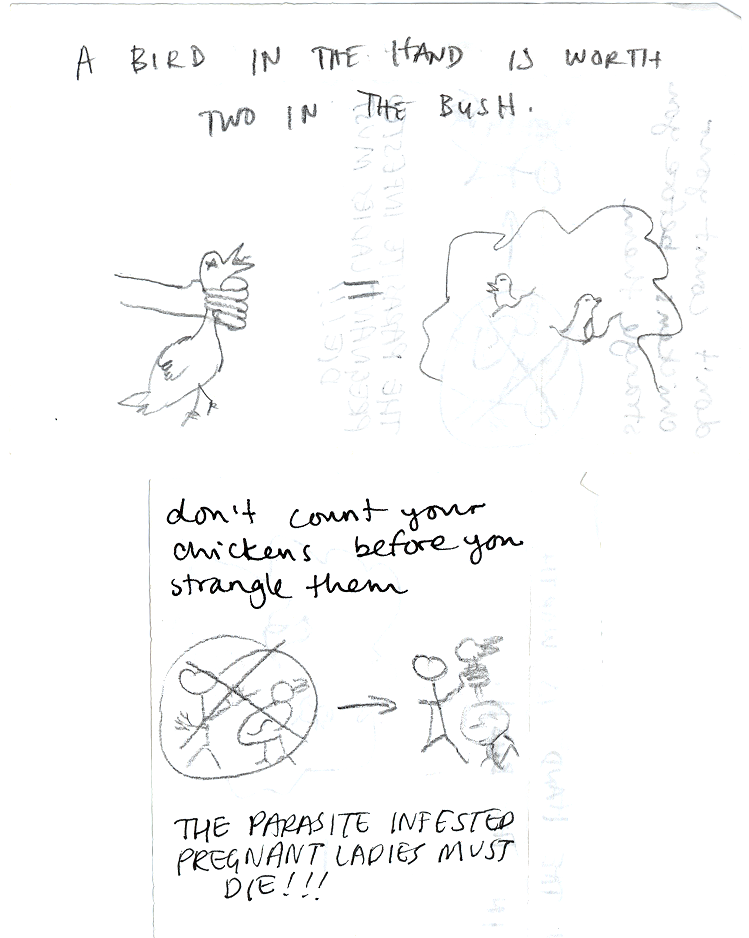 A BIRD IN THE HAND IS WORTH
TWO IN THE BUSH.
=
don't count your
chickens before you
strangle them
THE PARASITE INFESTED
PREGNANT LADIES MUST
DIE!!!